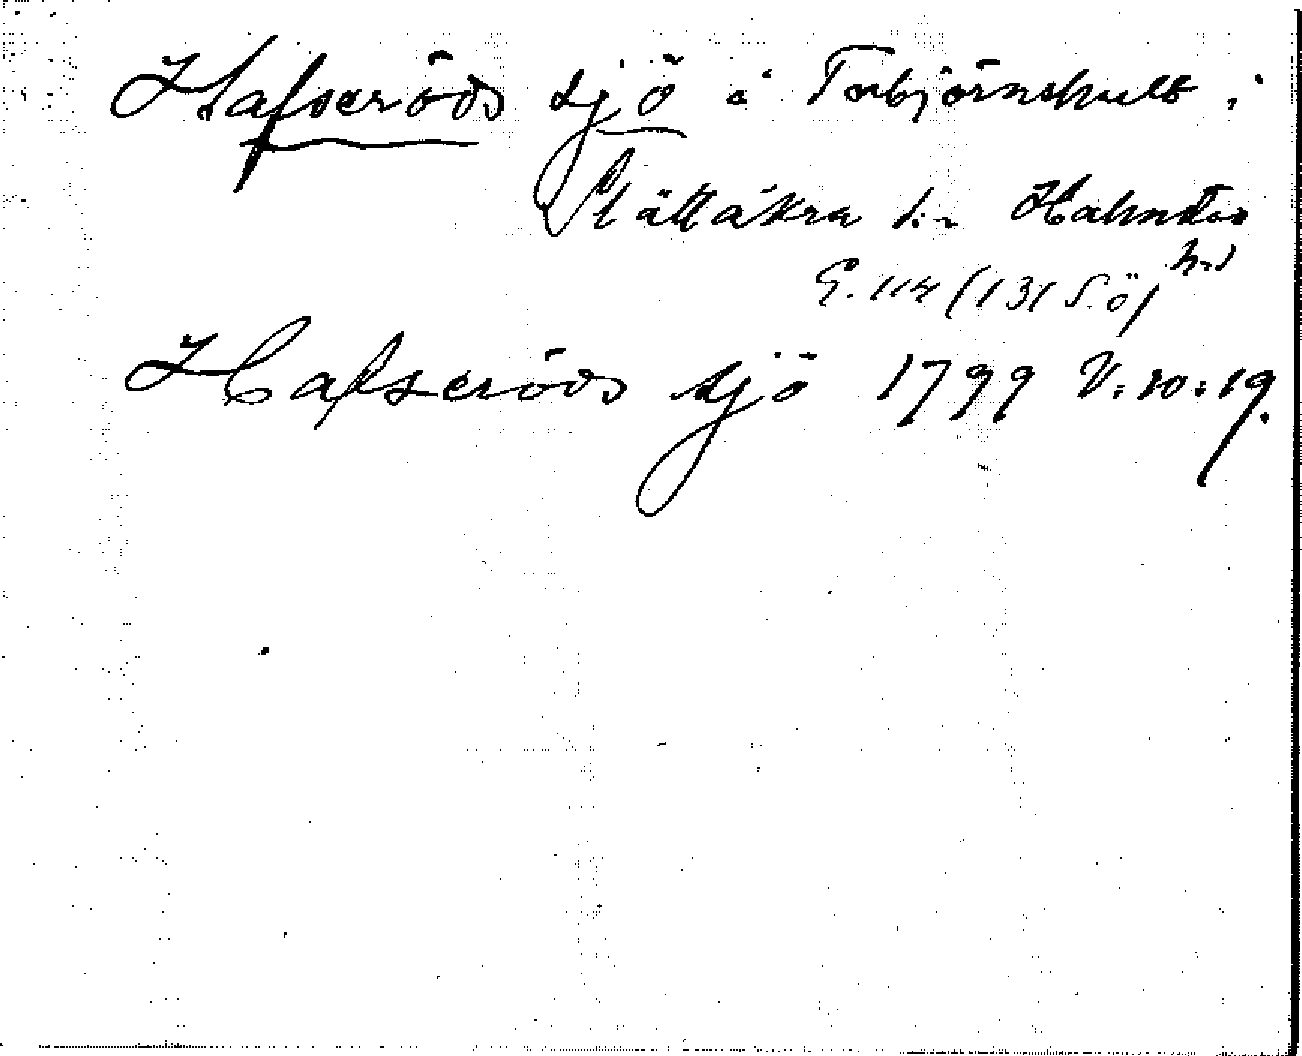 Hafseröds sjö å Torbjörnshult i
Slättåkra s:n Halmstas
hrd
G. 114 (131 S.ö)
Hafseröds sjö 1799 V:10:19.